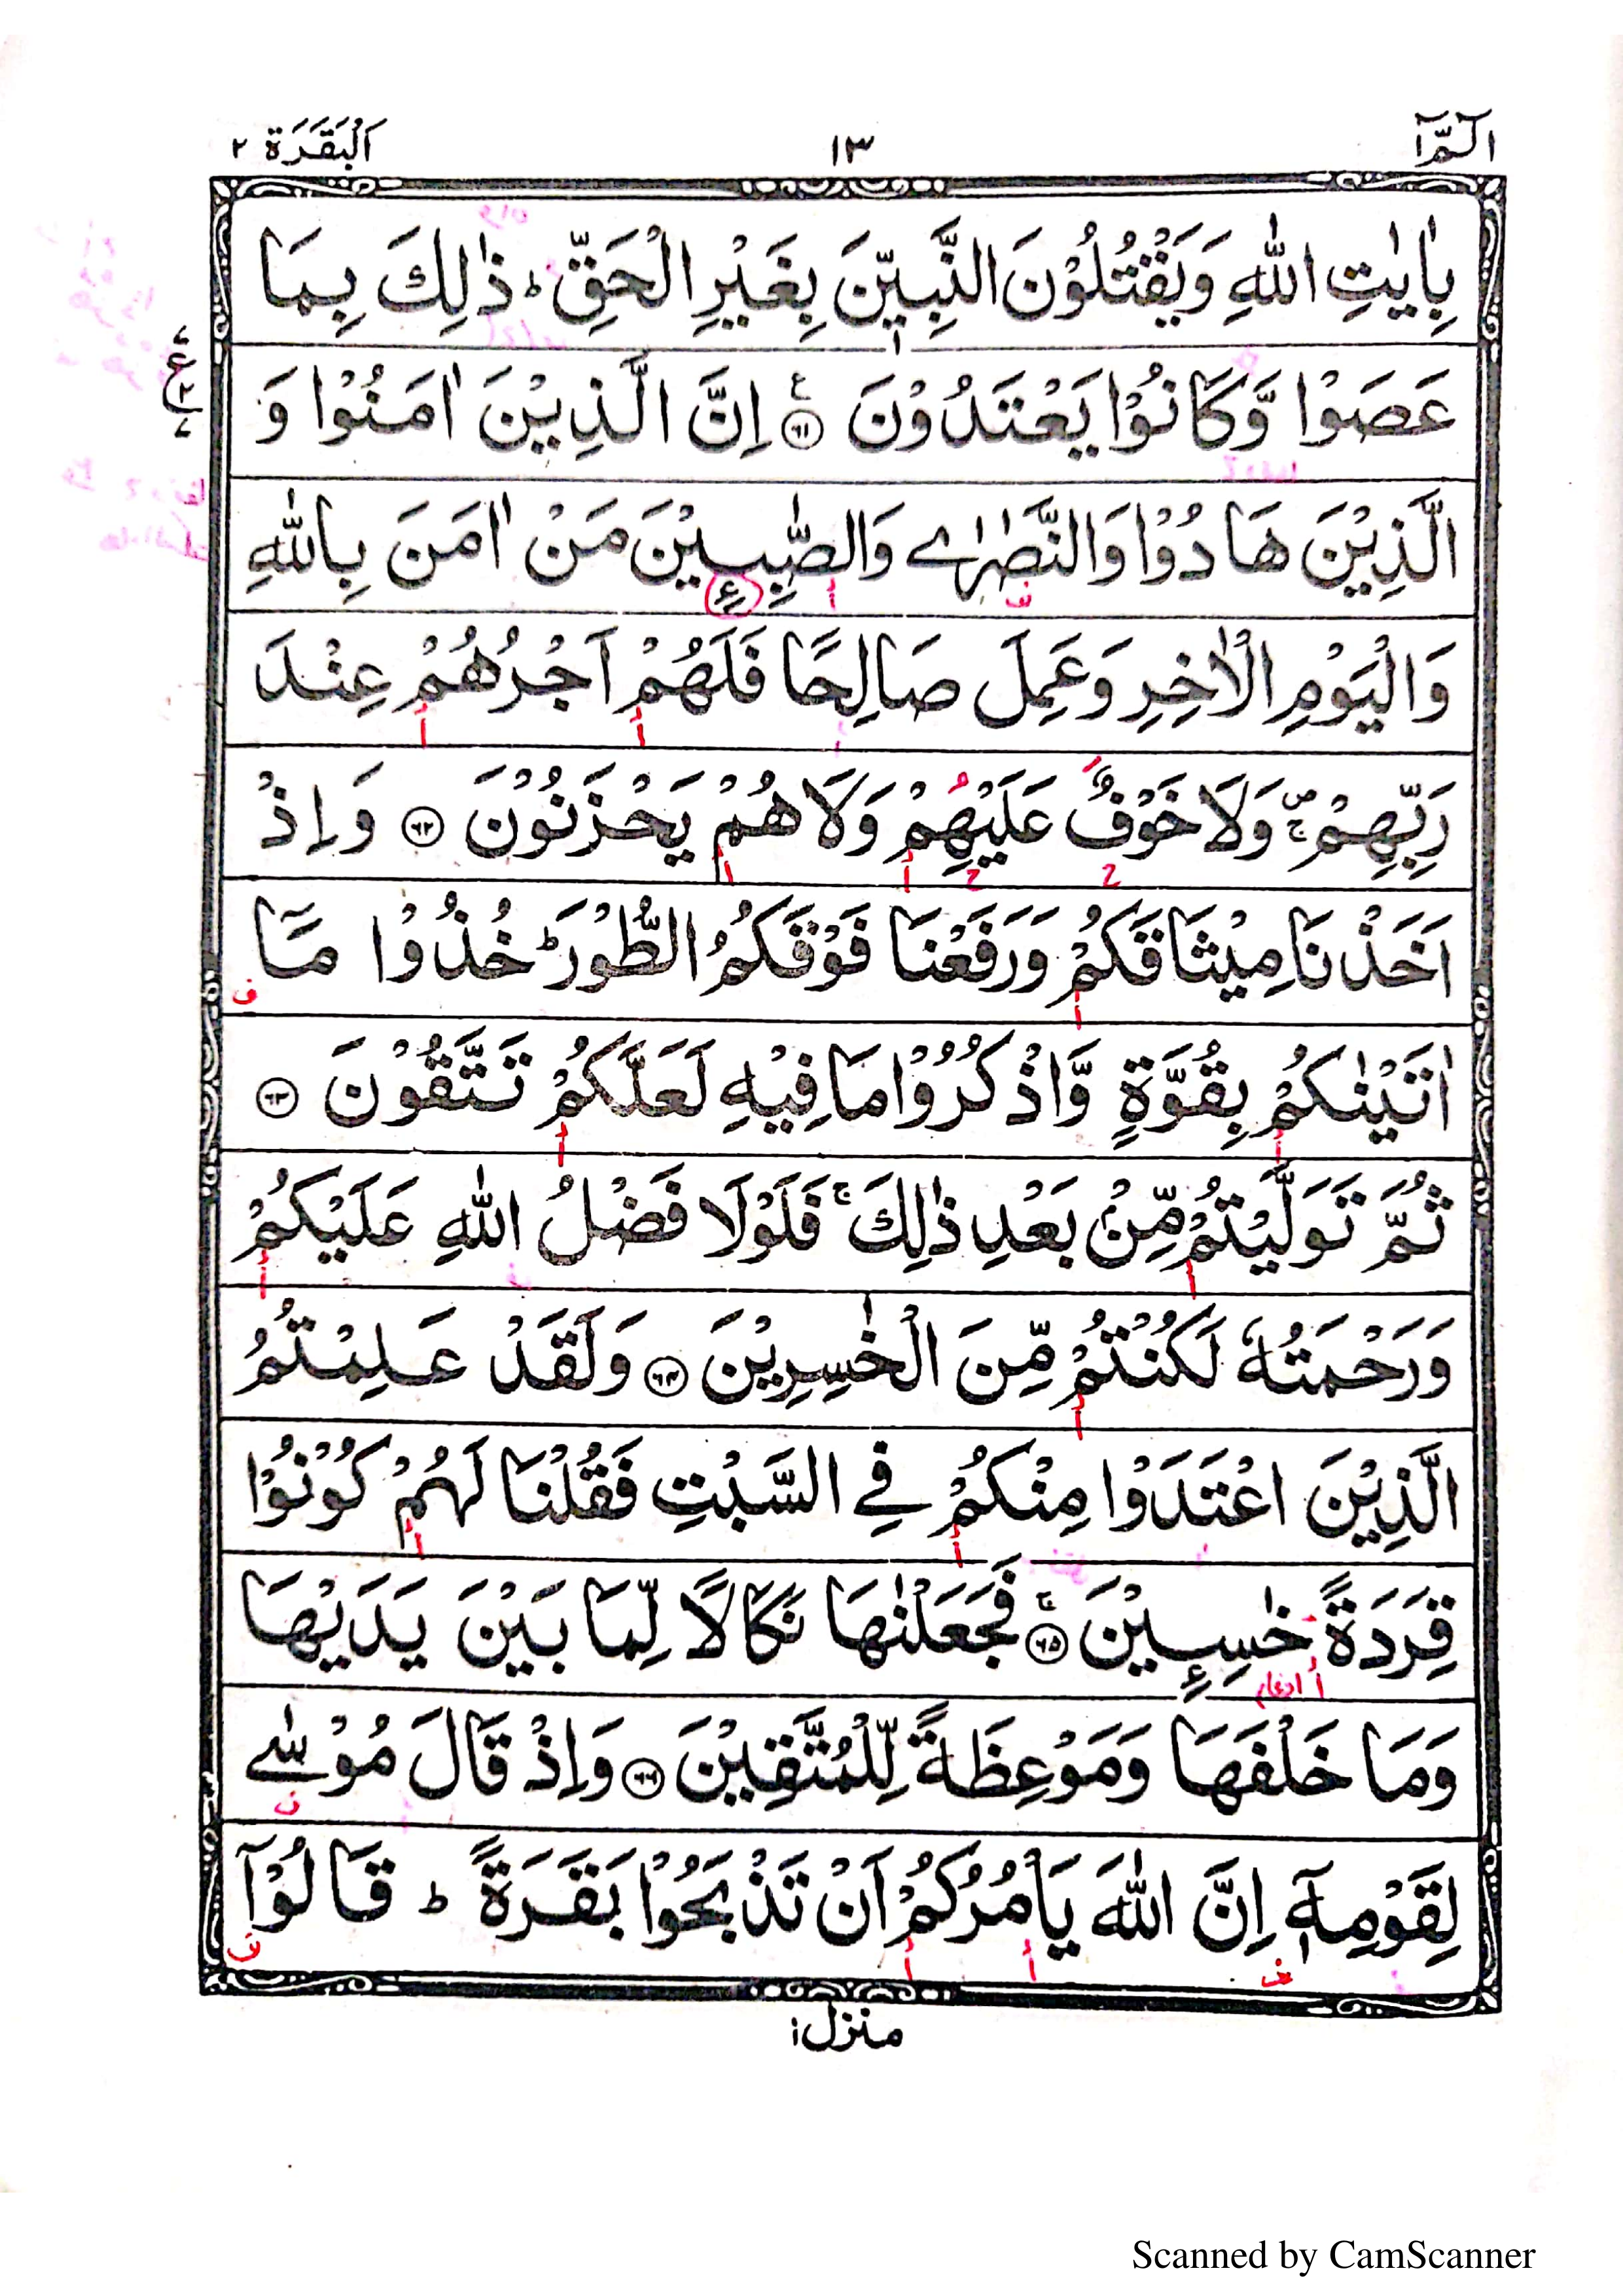 الٓمّٓ ١
١٣
اَلْبَقَرَة ٢
بِاٰيٰتِ اللّٰهِ وَيَقْتُلُوْنَ النَّبِيّٖنَ بِغَيْرِ الْحَقِّ ؕ ذٰلِكَ بِمَا
عَصَوْا وَّكَانُوْا يَعْتَدُوْنَ ﴿٦١﴾ اِنَّ الَّذِيْنَ اٰمَنُوْا وَ
الَّذِيْنَ هَادُوْا وَالنَّصٰرٰى وَالصّٰبِـِٕيْنَ مَنْ اٰمَنَ بِاللّٰهِ
وَالْيَوْمِ الْاٰخِرِ وَعَمِلَ صَالِحًا فَلَهُمْ اَجْرُهُمْ عِنْدَ
رَبِّهِمْ ۪ۚ وَلَا خَوْفٌ عَلَيْهِمْ وَلَا هُمْ يَحْزَنُوْنَ ﴿٦٢﴾ وَاِذْ
اَخَذْنَا مِيْثَاقَكُمْ وَرَفَعْنَا فَوْقَكُمُ الطُّوْرَ ؕ خُذُوْا مَآ
اٰتَيْنٰكُمْ بِقُوَّةٍ وَّاذْكُرُوْا مَا فِيْهِ لَعَلَّكُمْ تَتَّقُوْنَ ﴿٦٣﴾
ثُمَّ تَوَلَّيْتُمْ مِّنْۢ بَعْدِ ذٰلِكَ ۚ فَلَوْلَا فَضْلُ اللّٰهِ عَلَيْكُمْ
وَرَحْمَتُهٗ لَكُنْتُمْ مِّنَ الْخٰسِرِيْنَ ﴿٦٤﴾ وَلَقَدْ عَلِمْتُمُ
الَّذِيْنَ اعْتَدَوْا مِنْكُمْ فِي السَّبْتِ فَقُلْنَا لَهُمْ كُوْنُوْا
قِرَدَةً خٰسِـِٕيْنَ ۚ ﴿٦٥﴾ فَجَعَلْنٰهَا نَكَالًا لِّمَا بَيْنَ يَدَيْهَا
وَمَا خَلْفَهَا وَمَوْعِظَةً لِّلْمُتَّقِيْنَ ﴿٦٦﴾ وَاِذْ قَالَ مُوْسٰى
لِقَوْمِهٖٓ اِنَّ اللّٰهَ يَاْمُرُكُمْ اَنْ تَذْبَحُوْا بَقَرَةً ؕ قَالُوْٓا
منزل ١
Scanned by CamScanner